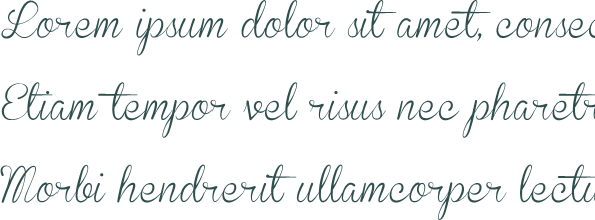 Lorem ipsum dolor sit amet, consec
Etiam tempor vel risus nec pharetr
Morbi hendrerit ullamcorper lectu